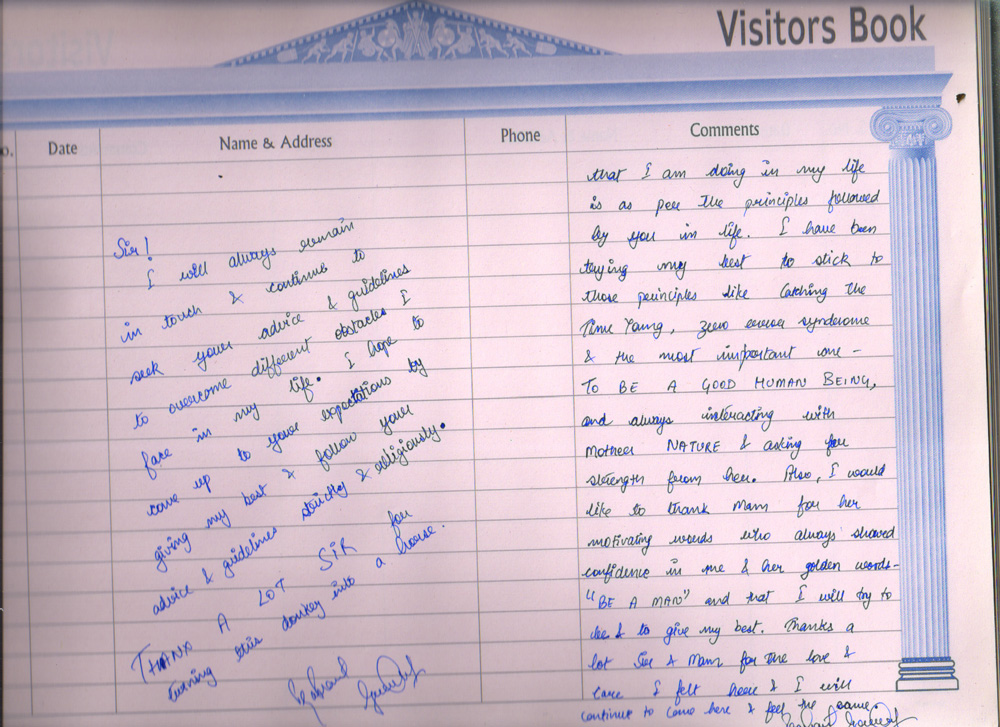 Visitors Book
o. Date Name & Address Phone Comments
Sir!
I will always remain
in touch & continue to
seek your advice & guidelines
to overcome different obstacles I
face in my life. I hope to
come up to your expectations by
giving my best & follow your
advice & guidelines strictly & religiously.
THANX A LOT SIR for
turning this donkey into a horse.
that I am doing in my life
is as per the principles followed
by you in life. I have been
trying my best to stick to
those principles like Catching the
Time Young, zero error syndrome
& the most important one -
TO BE A GOOD HUMAN BEING,
and always interacting with
Mother NATURE & asking for
strength from her. Also, I would
like to thank Mam for her
motivating words who always showed
confidence in me & her golden words-
"BE A MAN" and that I will try to
be & to give my best. Thanks a
lot Sir & Mam for the love &
care I felt here & I will
continue to come here & feel the same.